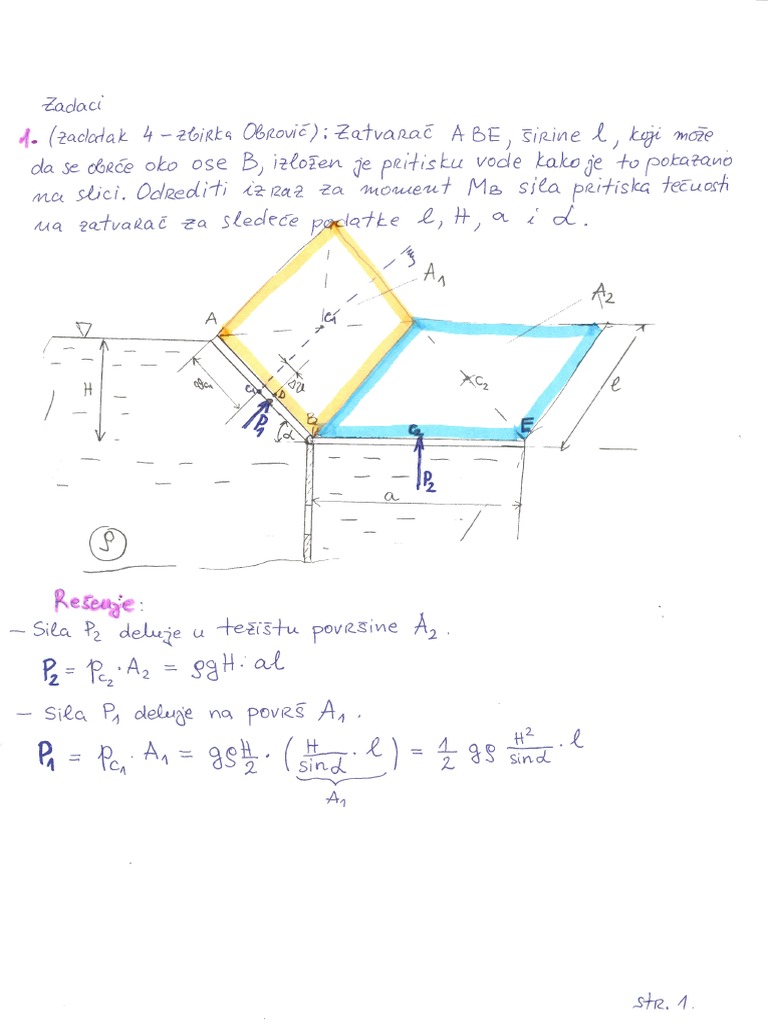 Zadaci
1. (zadatak 4 - zbirka Obrović): Zatvarač ABE, širine l, koji može
da se obrće oko ose B, izložen je pritisku vode kako je to pokazano
na slici. Odrediti izraz za moment MB sila pritiska tečnosti
na zatvarač za sledeće podatke l, H, a i α.
ξ
A1
A2
A
C1
C2
l
H
C1
D
P1
α
B
C2
E
P2
a
ρ
Rešenje:
- Sila P2 deluje u težištu površine A2.
P2 = pC2 · A2 = ρgH · al
- Sila P1 deluje na površ A1.
P1 = pC1 · A1 = gρ H/2 · (H/sinα · l) = 1/2 gρ H²/sinα · l
A1
str. 1.